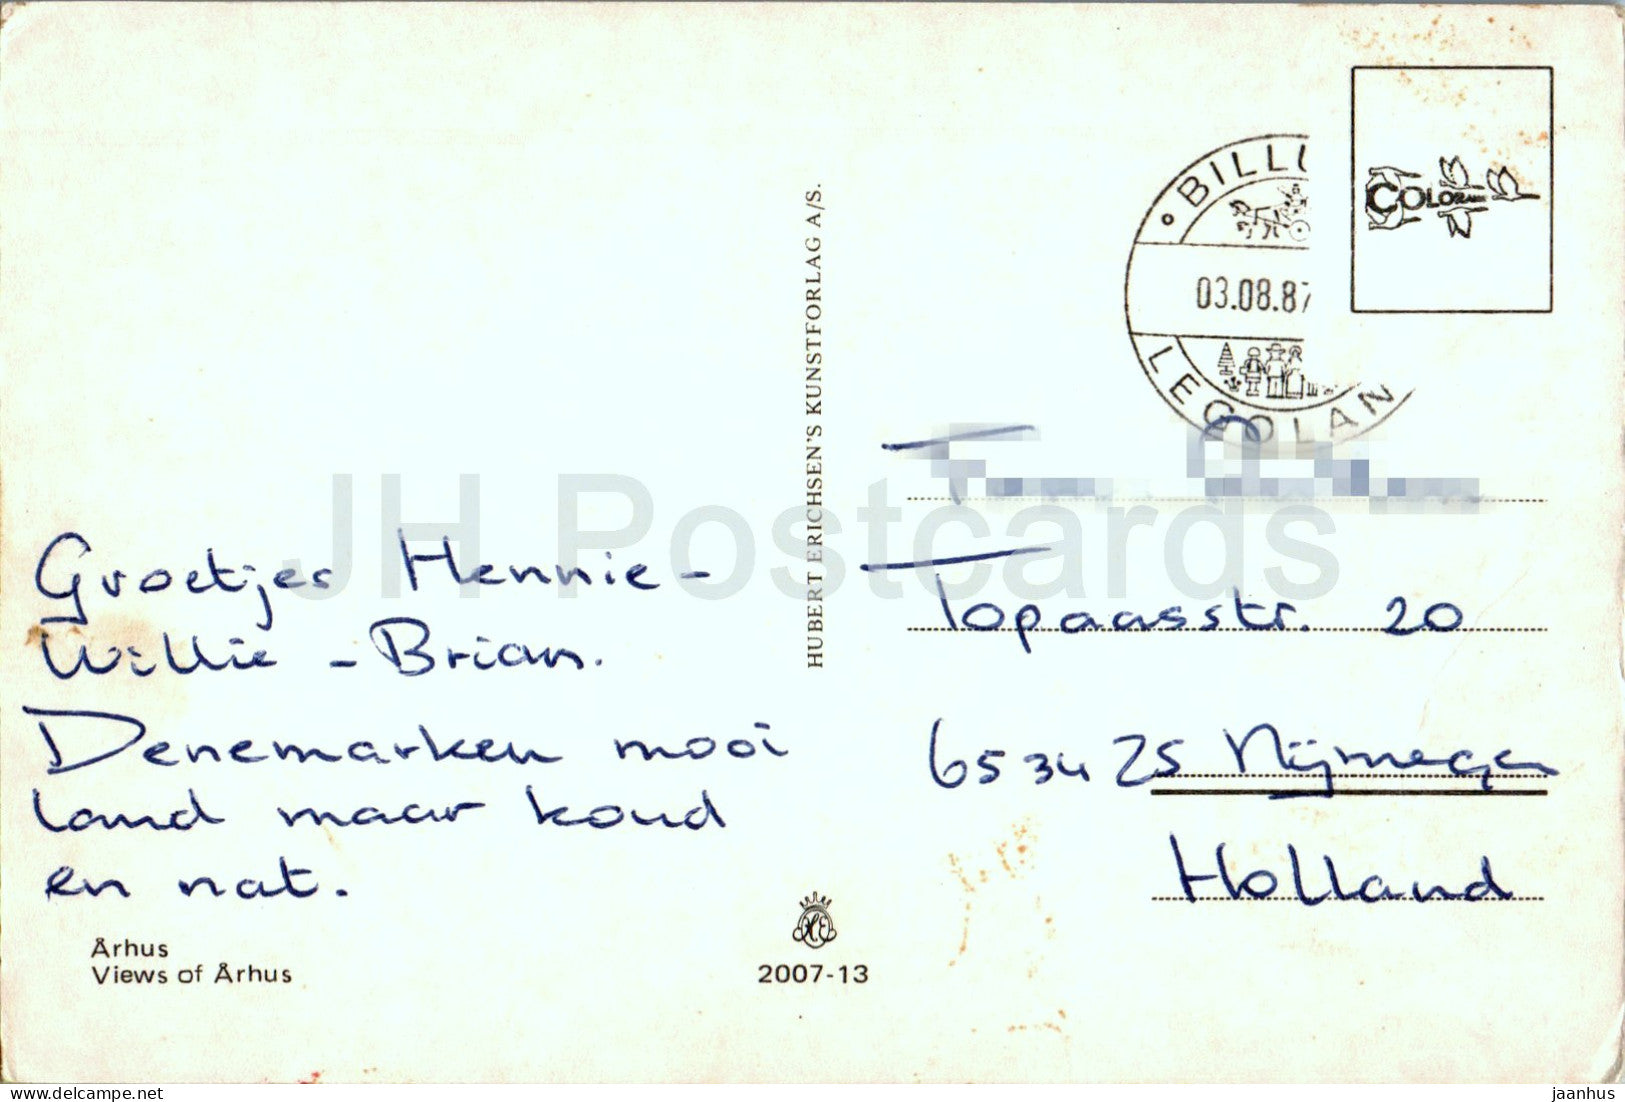 BILLU
03.08.87
LEGOLAN
COLOR
HUBERT ERICHSEN'S KUNSTFORLAG A/S.
JH Postcards
Groetjes Hennie -
Willie - Brian.
Denemarken mooi
land maar koud
en nat.
Topaasstr. 20
6534 ZS Nijmegen
Holland
Århus
Views of Århus
HE
2007-13
delcampe.net
jaanhus